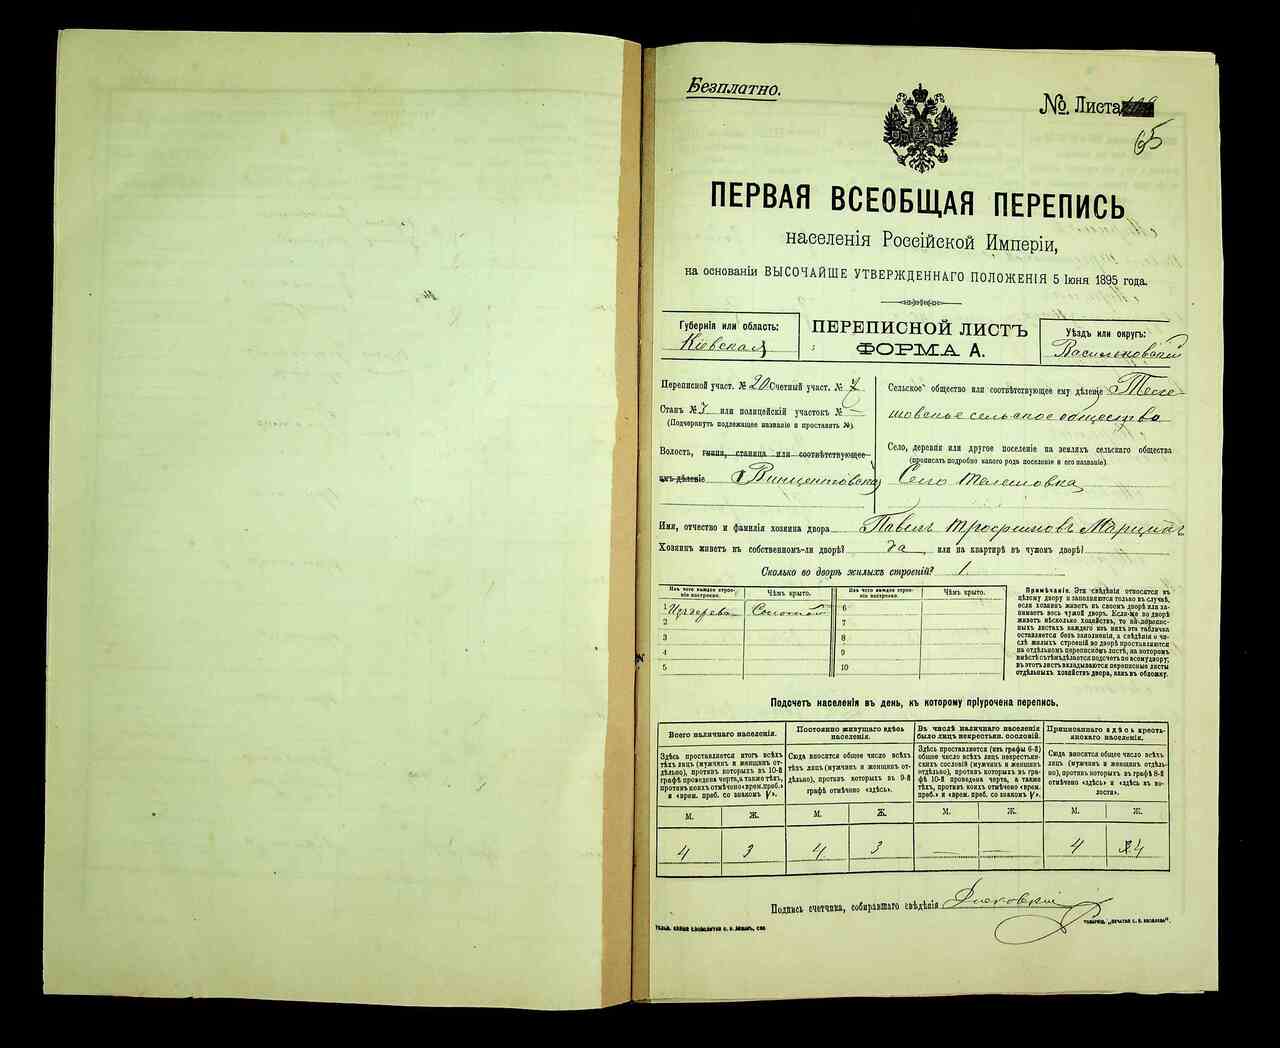 Безплатно.
№ Листа
65
ПЕРВАЯ ВСЕОБЩАЯ ПЕРЕПИСЬ
населенія Россійской Имперіи,
на основаніи ВЫСОЧАЙШЕ УТВЕРЖДЕННАГО ПОЛОЖЕНІЯ 5 Іюня 1895 года.
Губернія или область:
Кіевская
ПЕРЕПИСНОЙ ЛИСТЪ
ФОРМА А.
Уѣздъ или округъ:
Васильковскій
Переписной участ. № 20 Счетный участ. № 7
Станъ № 3 или полицейскій участокъ № —
(Подчеркнуть подлежащее названіе и проставить №).
Волость, гмина, станица или соотвѣтствующее
имъ дѣленіе Винцентовская
Сельское общество или соотвѣтствующее ему дѣленіе Теле-
шовское сельское общество
Село, деревня или другое поселеніе на земляхъ сельскаго общества
(прописать подробно какого рода поселеніе и его названіе).
Село Телешовка
Имя, отчество и фамилія хозяина двора Павелъ Трофимовъ
Хозяинъ живетъ въ собственномъ-ли дворѣ? да или на квартирѣ въ чужомъ дворѣ?
Сколько во дворѣ жилыхъ строеній? 1.
Изъ чего каждое строе-
ніе построено.
Чѣмъ крыто.
Изъ чего каждое строе-
ніе построено.
Чѣмъ крыто.
1 Изъ дерева Соломой 6
2 7
3 8
4 9
5 10
Примѣчаніе. Эти свѣдѣнія относятся къ
цѣлому двору и заполняются только въ случаѣ,
если хозяинъ живетъ въ своемъ дворѣ или за-
нимаетъ весь чужой дворъ. Если-же во дворѣ
живетъ нѣсколько хозяйствъ, то на перепис-
ныхъ листахъ каждаго изъ нихъ эта табличка
оставляется безъ заполненія, а свѣдѣнія о чи-
слѣ жилыхъ строеній во дворѣ проставляются
на отдѣльномъ переписномъ листѣ, на которомъ
вмѣстѣ съ тѣмъ дѣлается подсчетъ по всему двору;
въ этотъ листъ вкладываются переписные листы
отдѣльныхъ хозяйствъ двора, какъ въ обложку.
Подсчетъ населенія въ день, къ которому пріурочена перепись.
Всего наличнаго населенія.
Постоянно живущаго здѣсь
населенія.
Въ числѣ наличнаго населенія
было лицъ некрестьян. сословій.
Приписаннаго здѣсь кресть-
янскаго населенія.
Здѣсь проставляется итогъ всѣхъ
тѣхъ лицъ (мужчинъ и женщинъ от-
дѣльно), противъ которыхъ въ 10-й
графѣ проведена черта, а также тѣхъ,
противъ коихъ отмѣчено «врем. преб.»
и «врем. преб. со знакомъ V».
Сюда вносится общее число всѣхъ
тѣхъ лицъ (мужчинъ и женщинъ от-
дѣльно), противъ которыхъ въ 9-й
графѣ отмѣчено «здѣсь».
Здѣсь проставляется (изъ графы 6-й)
общее число всѣхъ лицъ некрестьян-
скихъ сословій (мужчинъ и женщинъ
отдѣльно), противъ которыхъ въ гра-
фѣ 10-й проведена черта, а также
тѣхъ, противъ коихъ отмѣчено «врем.
преб.» и «врем. преб. со знакомъ V».
Сюда вносится общее число всѣхъ
лицъ (мужчинъ и женщинъ отдѣль-
но), противъ которыхъ въ графѣ 8-й
отмѣчено «здѣсь» и «здѣсь въ во-
лости».
М. Ж. М. Ж. М. Ж. М. Ж.
4 3 4 3 — — 4 4
Подпись счетчика, собиравшаго свѣдѣнія